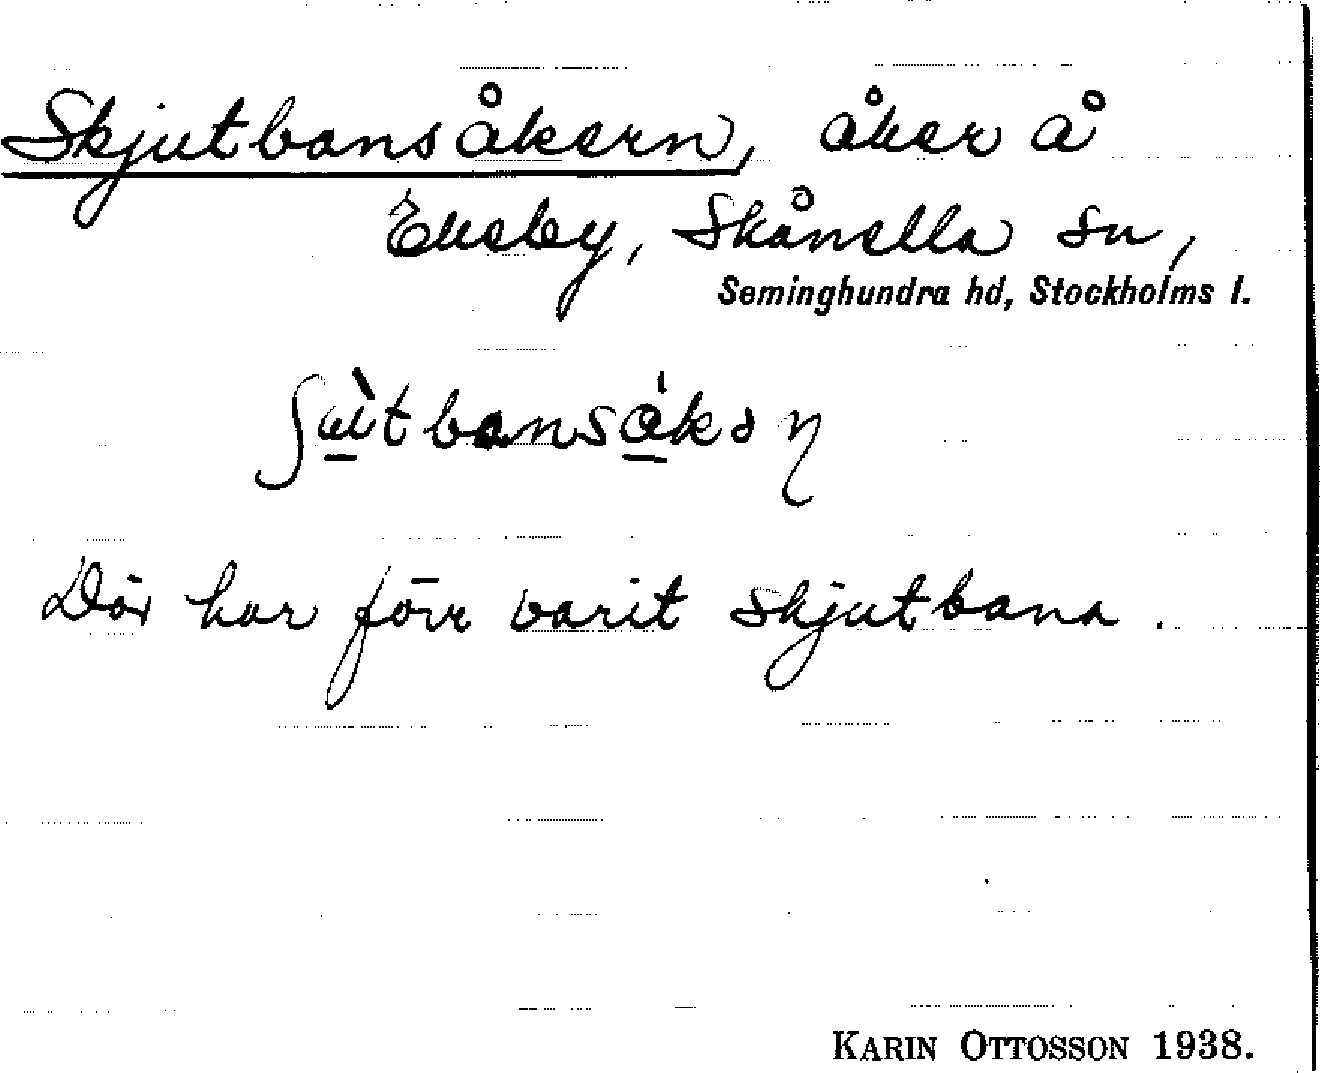 Skjutbansåkern, åker å
Eneby, Skånella sn,
Seminghundra hd, Stockholms l.
ʃù̲tbansa̲̍kəɳ
Där har förr varit skjutbana.
KARIN OTTOSSON 1938.